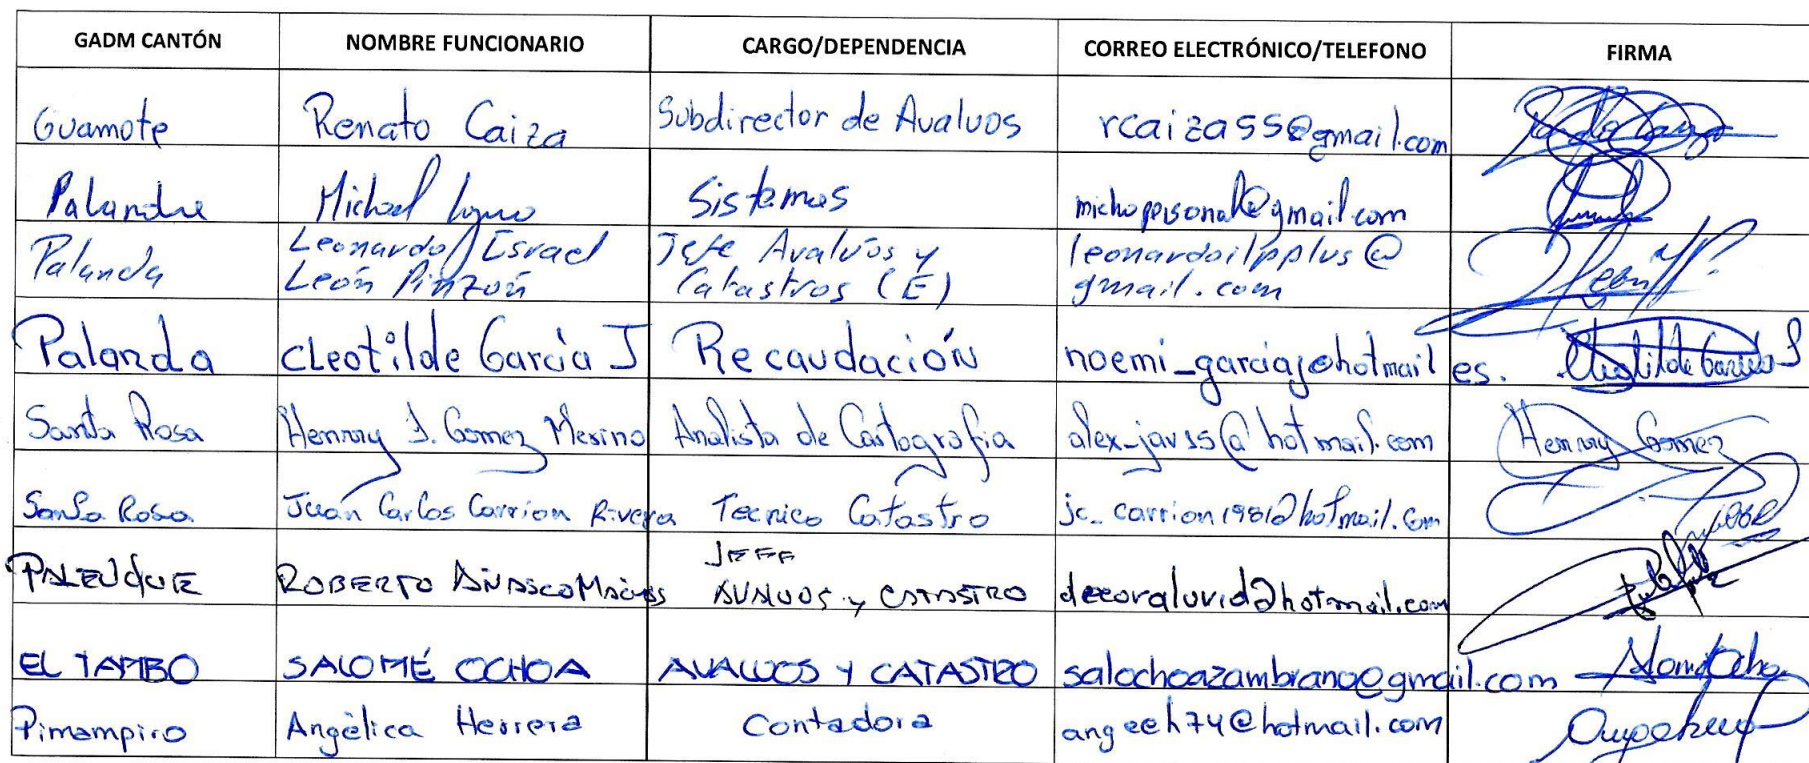 GADM CANTÓN NOMBRE FUNCIONARIO CARGO/DEPENDENCIA CORREO ELECTRÓNICO/TELEFONO FIRMA
Guamote Renato Caiza Subdirector de Avaluos rcaiza55@gmail.com
Michael Sistemas michopersonal@gmail.com
Palanda Leonardo Israel Jefe Avalúos y leonardoilpplus@
León Pinzón Catastros (E) gmail.com
Palanda Cleotilde García J Recaudación noemi_garciaj@hotmail es. Cleotilde García J
Santa Rosa Henrry J. Gomez Merino Analista de Cartografia alex-jav35@hotmail.com Henrry Gomez
Santa Rosa Juan Carlos Carrion Rivera Tecnico Catastro jc_carrion1981@hotmail.com
JEFE
PALENQUE ROBERTO AÑASCO MACÍAS AVALUOS y CATASTRO decoraluvid@hotmail.com
EL TAMBO SALOMÉ OCHOA AVALUOS Y CATASTRO salochoazambrano@gmail.com
Pimampiro Angèlica Herrera Contadora angeeh74@hotmail.com